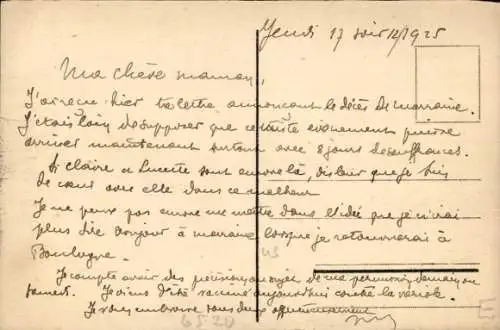 Jeudi 17 soir 12/1925
Ma chère maman,
J'ai reçu hier ta lettre annonçant le décès de marraine.
J'étais loin de supposer que ce triste évènement puisse
arriver maintenant surtout avec 8 jours de souffrances.
Si Claire et Lucette sont encore là, dis leur que je suis
de cœur avec elle dans ce malheur
Je ne peux pas encore me mettre dans l'idée que je n'irai
plus dire bonjour à marraine lorsque je retournerai à
Boulogne.
Je compte avoir des précisions au sujet de ma permission demain ou
samedi. Je viens d'être vacciné aujourd'hui contre la variole.
Je vous embrasse tous deux affectueusement
6520